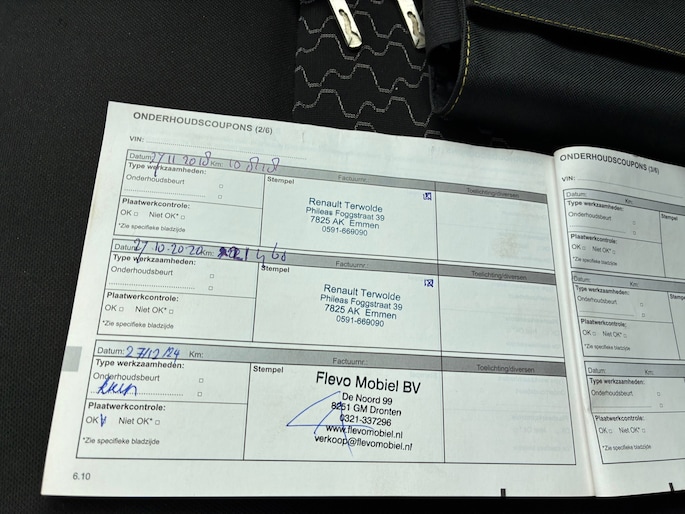 ONDERHOUDSCOUPONS (2/6)
VIN:
Datum: 27 11 2018 Km:
Factuurnr.:
Toelichting/diversen
Type werkzaamheden:
Onderhoudsbeurt
Stempel
Renault Terwolde
Phileas Foggstraat 39
7825 AK Emmen
0591-669090
Plaatwerkcontrole:
OK □ Niet OK* □
*Zie specifieke bladzijde
Datum: 27 10 2020 Km:
Factuurnr.:
Toelichting/diversen
Type werkzaamheden:
Onderhoudsbeurt
Stempel
Renault Terwolde
Phileas Foggstraat 39
7825 AK Emmen
0591-669090
Plaatwerkcontrole:
OK □ Niet OK* □
*Zie specifieke bladzijde
Datum: 27/12/24 Km:
Factuurnr.:
Toelichting/diversen
Type werkzaamheden:
Onderhoudsbeurt
Stempel
Flevo Mobiel BV
De Noord 99
8251 GM Dronten
0321-337296
www.flevomobiel.nl
verkoop@flevomobiel.nl
Plaatwerkcontrole:
OK Niet OK* □
*Zie specifieke bladzijde
6.10
ONDERHOUDSCOUPONS (3/6)
VIN:
Datum: Km:
Type werkzaamheden:
Onderhoudsbeurt
Stempel
Plaatwerkcontrole:
OK □ Niet OK* □
*Zie specifieke bladzijde
Datum: Km:
Type werkzaamheden:
Onderhoudsbeurt
Stempel
Plaatwerkcontrole:
OK □ Niet OK* □
*Zie specifieke bladzijde
Datum: Km:
Type werkzaamheden:
Onderhoudsbeurt
Stempel
Plaatwerkcontrole:
OK □ Niet OK* □
*Zie specifieke bladzijde